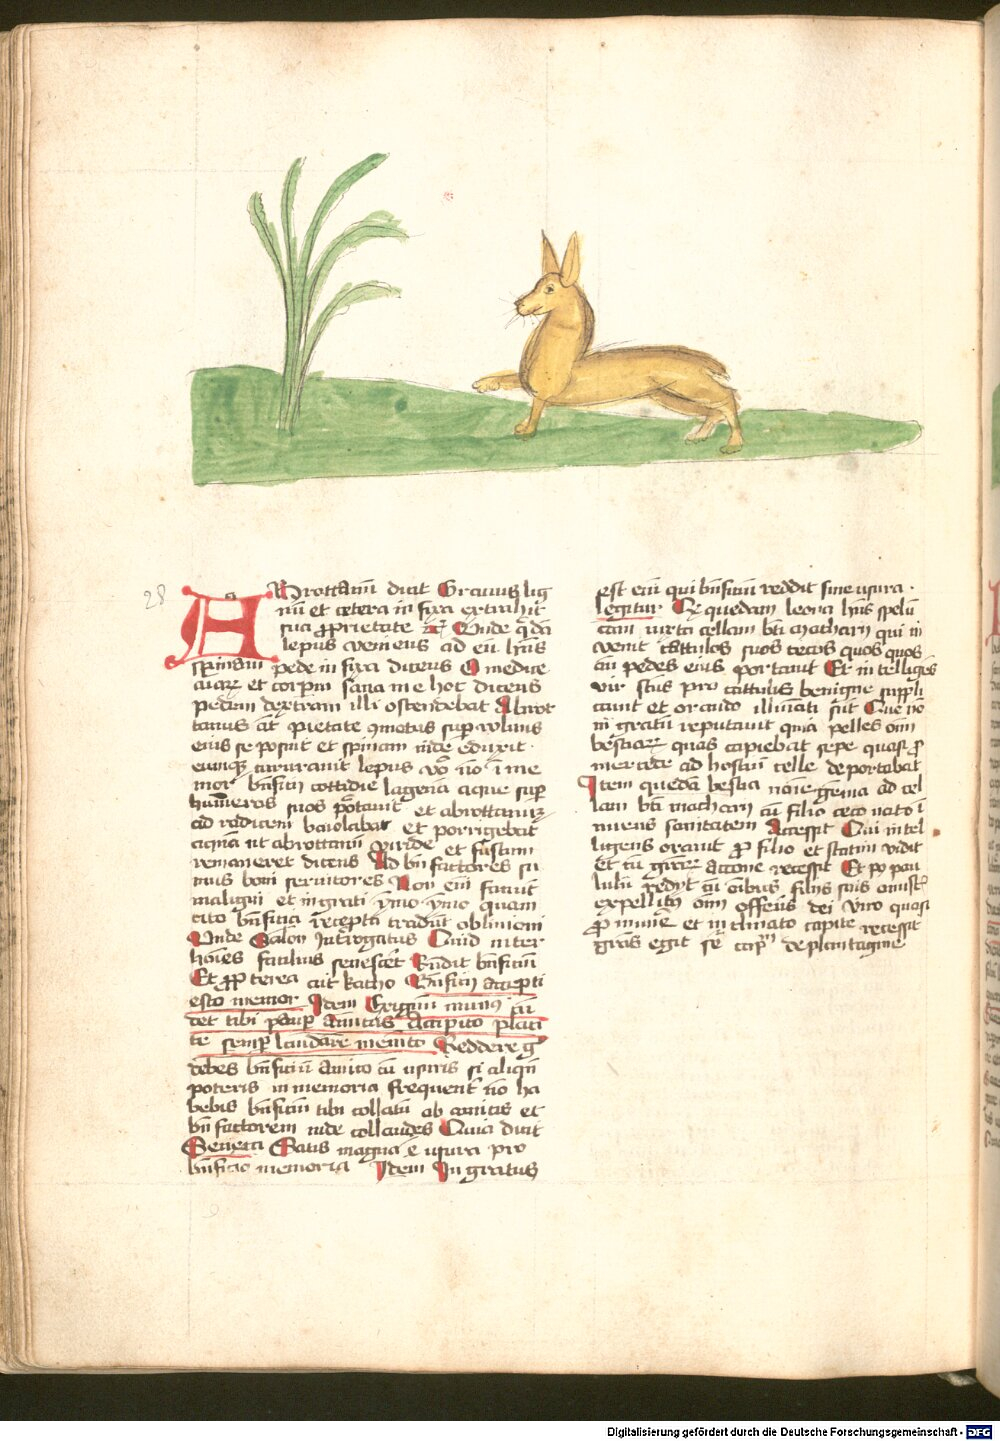 28
Abrottanū dicit Gravius lig
nū et cetera in fixa extrahit
sua ꝓprietate Unde qdā
lepus veniens ad eū hn̄s
spinam pede in fixa dicens O medice
et corpm̄ sana me hoc dicens
pedem dextram illi ostendebat Abrot
tanus at pietate ꝯmotus sup volvus
eius se posuit et spinam inde eduxit
eumqꝫ curavit lepus vo nō ī me
mor bn̄ficii cottidie lagenā aque sup
humeros suos portavit et abrottanūꝫ
ad radicem baiolabat et porrigebat
aquā ut abrottanū viride et sanum
remaneret dicens Ad bn̄factores su
mus boni servitores Non em̄ faciūt
maligni et ingrati ymo ymo quam
cito bn̄ficia recepta tradūt oblivioni
Unde Salon Introgatus Quid inter
hoīes facilius senescēt Rn̄dit bn̄ficiū
Et ꝓpterea ait katho Bn̄ficii accepti
esto memor Idem Exiguū munꝯ cū
det tibi paup amicus Accipito placi
te semp laudare memēto Reddere gͦ
debes bn̄ficiū Amico cū usuris si aliqn̄
poteris in memoria frequent nō ha
bebis bn̄ficiū tibi collatū ab amicis et
bn̄factorem inde collaudes Quia dicit
Seneca Satis magna ē usura pro
bn̄ficio memoria Idem Ingratus
est em̄ qui bn̄ficiū reddit sine usura
legitur quedam leona hn̄s spelū
cam iuxta cellam bt̄i Macharii qui in
venit cattulos suos cecos quos quos
añ pedes eius portavit Et intelligēs
vir scūs pro cattulis benigne suppli
cavit et orando illuīati sūt Que nō
īgratū reputavit quia pelles om̄
bestiarꝫ quas capiebat sepe quasi ꝓ
mercede ad hostiū celle deportabat
Item quedā bestia ad cel
lam bt̄i macharii cū filio ceco nato ī
sanitatem Accessit Qui intel
ligens oravit ꝓ filio et statim vidit
et cū grāꝝ actione recessit Et po pau
lulū redyt cū oībus filiis suis
om̄ offerēs dei viro quasi
ꝓ munē et inclinato capite recessit
grās egit de plantagine
Digitalisierung gefördert durch die Deutsche Forschungsgemeinschaft - DFG